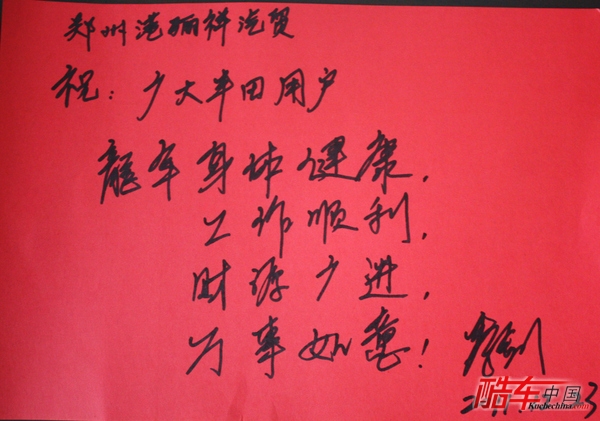 郑州港骊祥汽贸
祝：广大丰田用户
龍年身体健康，
工作顺利，
财源广进，
万事如意！
酷车中国
Kuchechina.com